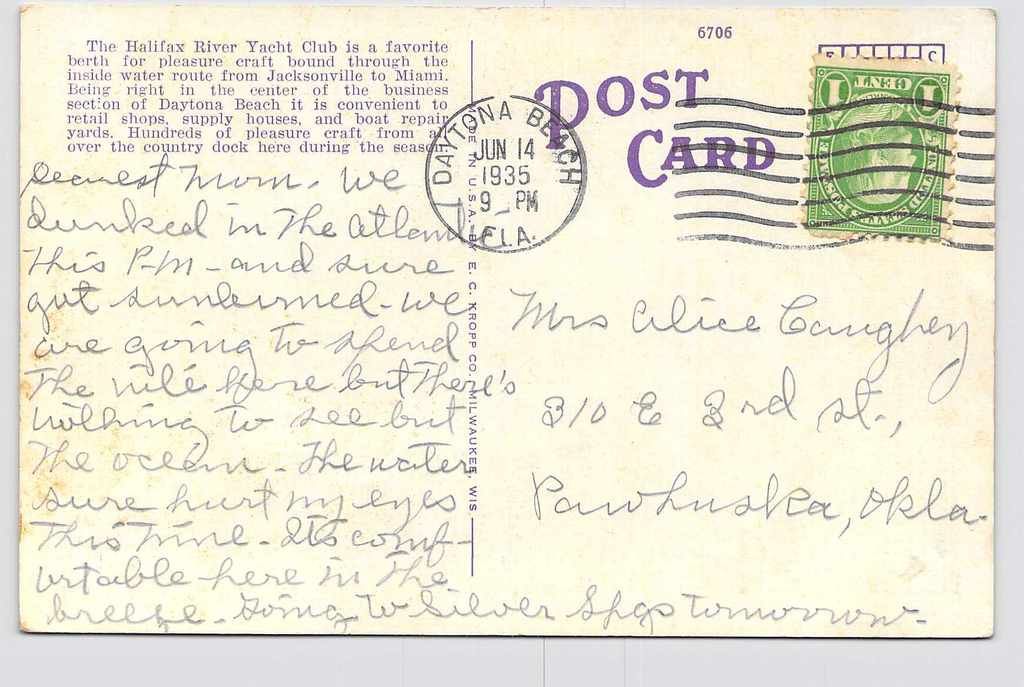 6706
The Halifax River Yacht Club is a favorite
berth for pleasure craft bound through the
inside water route from Jacksonville to Miami.
Being right in the center of the business
section of Daytona Beach it is convenient to
retail shops, supply houses, and boat repair
yards. Hundreds of pleasure craft from all
over the country dock here during the season.
POST
CARD
DAYTONA BEACH
JUN 14
1935
9 PM
FLA.
1 CENT 1
E IN U.S.A. BY E. C. KROPP CO., MILWAUKEE, WIS.
Dearest Mom. We
dunked in the Atlan
this P.M - and sure
got sunburned - we
are going to spend
the nite here but there's
nothing to see but
the ocean - The water
sure hurt my eyes
this time - Its comf-
ortable here in the
breeze. Going to Silver Spgs tomorrow -
Mrs Alice Caughey
310 E 3rd st.,
Pawhuska, Okla.